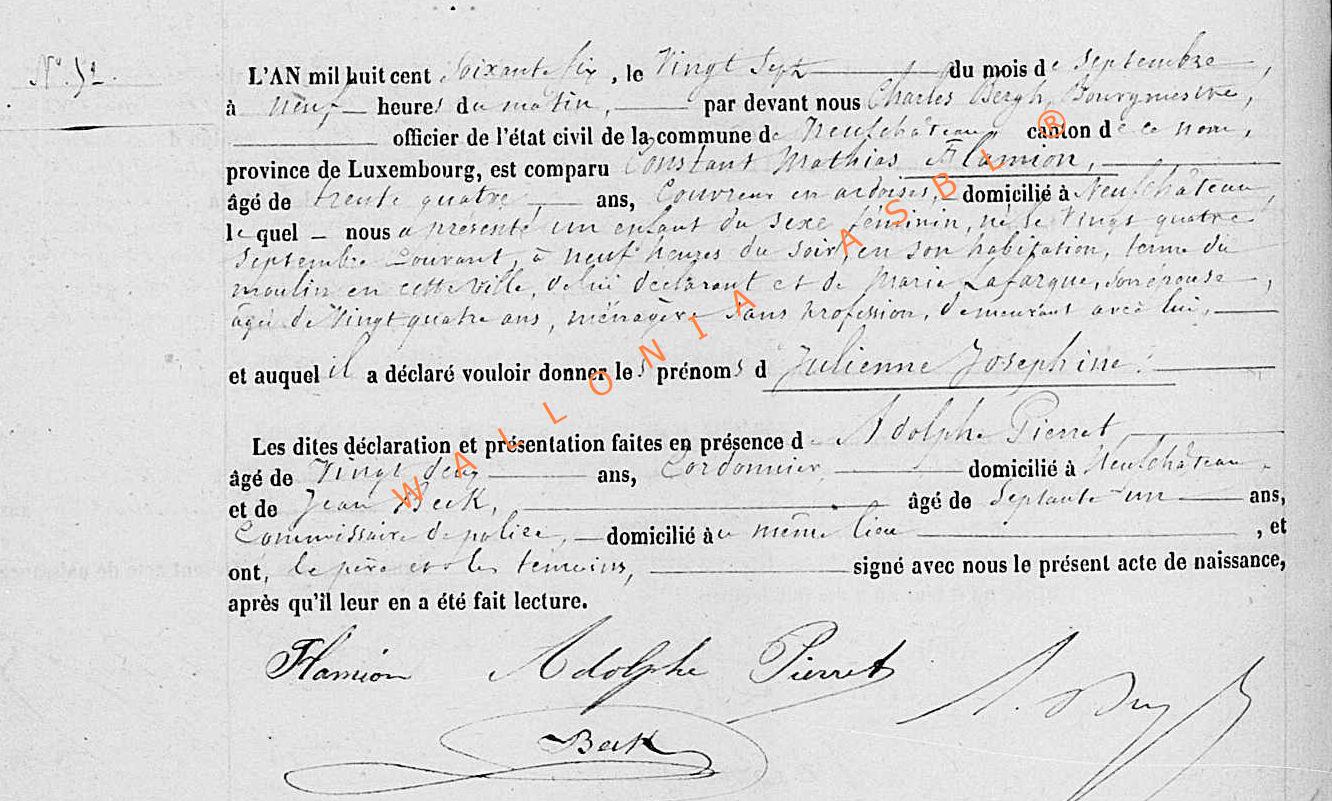 N° 52.
L'AN mil huit cent Soixante Six, le Vingt Sept du mois de Septembre,
à neuf heures du matin, par devant nous Charles Bergh, Bourgmestre,
officier de l'état civil de la commune de Neufchâteau, canton de ce nom,
province de Luxembourg, est comparu Constant Mathias Flamion,
âgé de trente quatre ans, Couvreur en ardoises, domicilié à Neufchâteau,
le quel nous a présenté un enfant du sexe féminin, né le Vingt quatre
Septembre Courant, à neuf heures du soir, en son habitation, terme du
moulin en cette Ville, de lui déclarant et de Marie Lafarque, son épouse,
âgée de Vingt quatre ans, ménagère sans profession, demeurant avec lui,
et auquel il a déclaré vouloir donner les prénoms d Julienne Josephine.
Les dites déclaration et présentation faites en présence d Adolphe Pierret,
âgé de Vingt deux ans, Cordonnier, domicilié à Neufchâteau,
et de Jean Beck, âgé de Septante un ans,
Commissaire de police, domicilié au même lieu, et
ont, le père et les témoins, signé avec nous le présent acte de naissance,
après qu'il leur en a été fait lecture.
Flamion Adolphe Pierret
Beck
WALLONIA ASBL ®